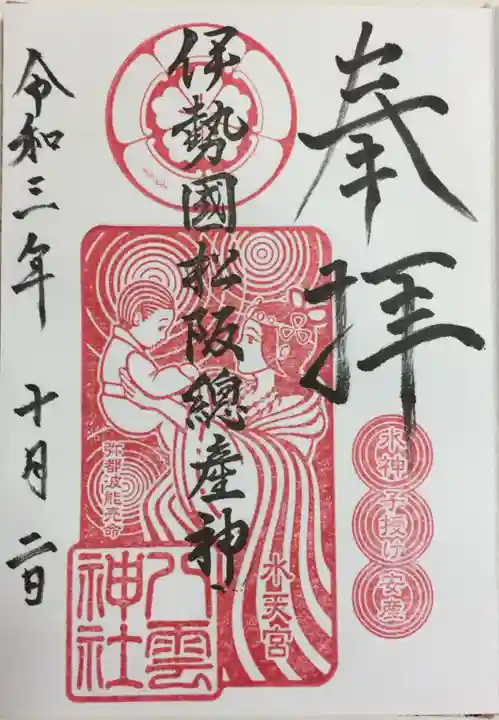 奉拝
水神
子授け
安産
伊勢國松阪總産神
水天宮
弥都波能売命
八雲神社
令和三年 十月 二日